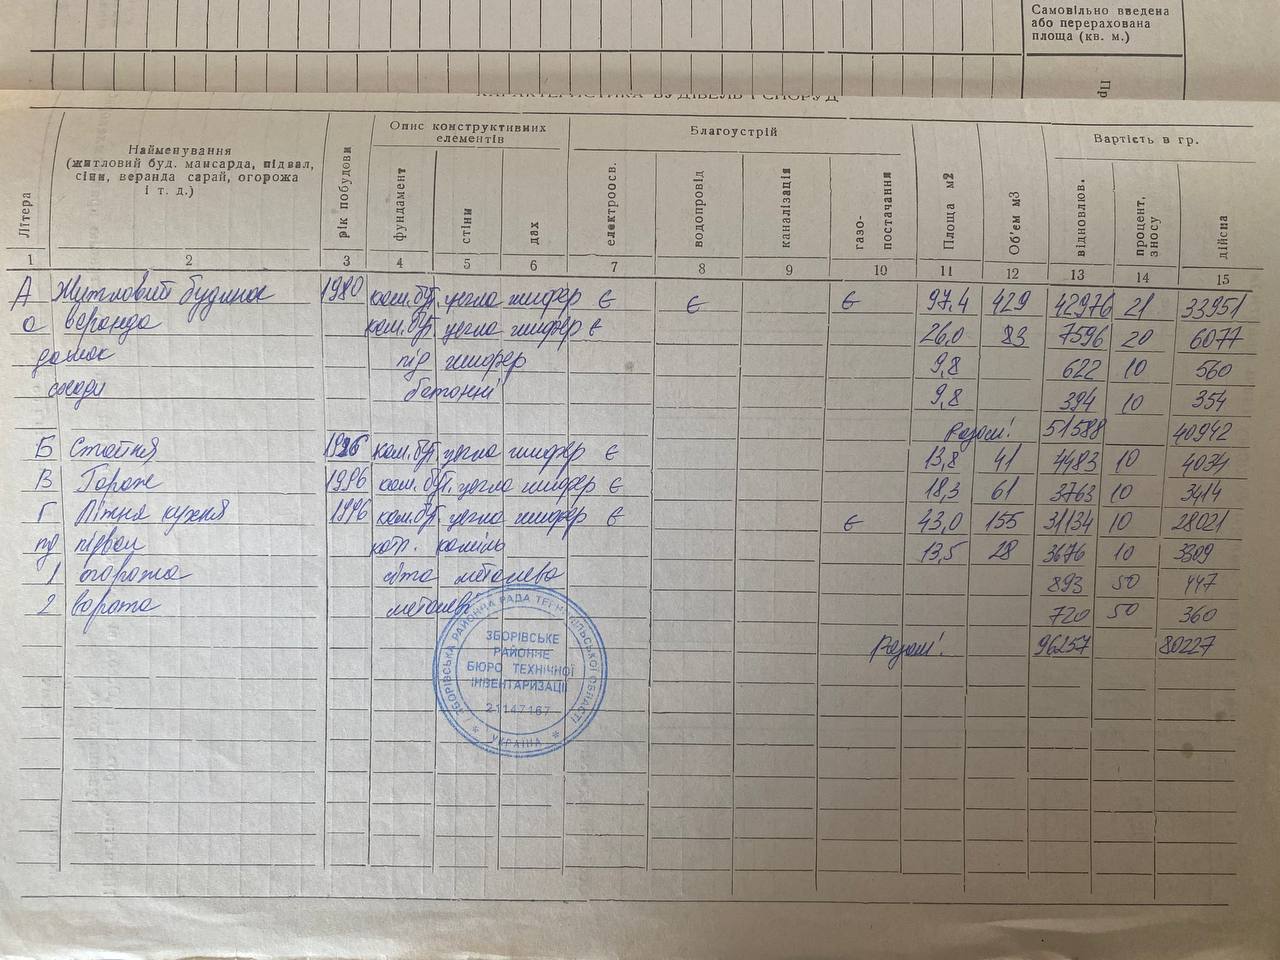 Самовільно введена
або перерахована
площа (кв. м.)
Пр
ХАРАКТЕРИСТИКА БУДІВЕЛЬ І СПОРУД
Літера
Найменування
(житловий буд. мансарда, підвал,
сіни, веранда сарай, огорожа
і т. д.)
рік побудови
Опис конструктивних
елементів
фундамент
стіни
дах
Благоустрій
електроосв.
водопровід
каналізація
газо-
постачання
Площа м2
Об'єм м3
Вартість в гр.
відновлюв.
процент.
зносу
дійсна
1 2 3 4 5 6 7 8 9 10 11 12 13 14 15
А Житловий будинок 1980 кам.бут. цегла шифер є є є 97,4 429 42976 21 33951
а веранда кам.бут. цегла шифер є 26,0 83 7596 20 6077
дашок під шифер 9,8 622 10 560
сходи бетонні 9,8 394 10 354
Разом: 51588 40942
Б Стайня кам.бут. цегла шифер є 13,8 41 4483 10 4034
В Гараж 1996 кам.бут. цегла шифер є 18,3 61 3763 10 3414
Г Літня кухня 1996 кам.бут. цегла шифер є є 43,0 155 31134 10 28021
пд підвал камінь 13,5 28 3676 10 3309
1 огорожа сітка металева 893 50 447
2 ворота металеві 720 50 360
Разом: 96257 80227
ЗБОРІВСЬКА РАЙОННА РАДА ТЕРНОПІЛЬСЬКОЇ ОБЛАСТІ
ЗБОРІВСЬКЕ
РАЙОННЕ
БЮРО ТЕХНІЧНОЇ
ІНВЕНТАРИЗАЦІЇ
21147167
* УКРАЇНА *